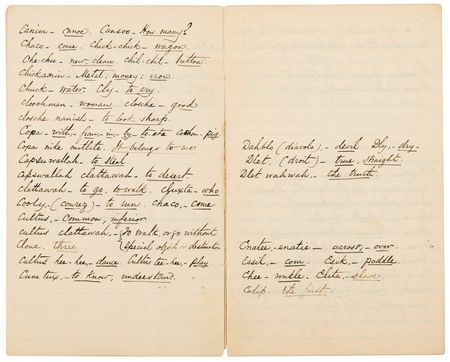 Canim - canoe. Cansoo - How many?
Chaco - come. Chick-chick - wagon.
Chee-chu - new, clean. Chil-chil - button.
Chickamin - Metal; money; iron
Chuck - water. Cly - to cry.
Cloochman - woman. closche - good
closche nanish - to look sharp.
Copa - with, - from, - in, - by - to - at
Copa nika mitlite. It belongs to
Capsuwallah to steal
Capswallah clattawah - to desert
clattawah - to go. to walk. - who
Cooley, (courez) - to run. chaco, - come
Cultus, - common, inferior
cultus clattawah, - To walk or go without
Clone three (special object - destination
Cultus hee-hee, - dance. Cultus hee-hee, - play.
Cumtux, - to know, understand.
Dahblo (diavolo) - devil Dly, - dry -
Dlet (droit) - true, straight.
Dlet wahwah, - the truth
Enatee, enatie - across, - over.
Essil, - corn. Esik, - paddle
Chee - Elita, - slave
Elip. the first.